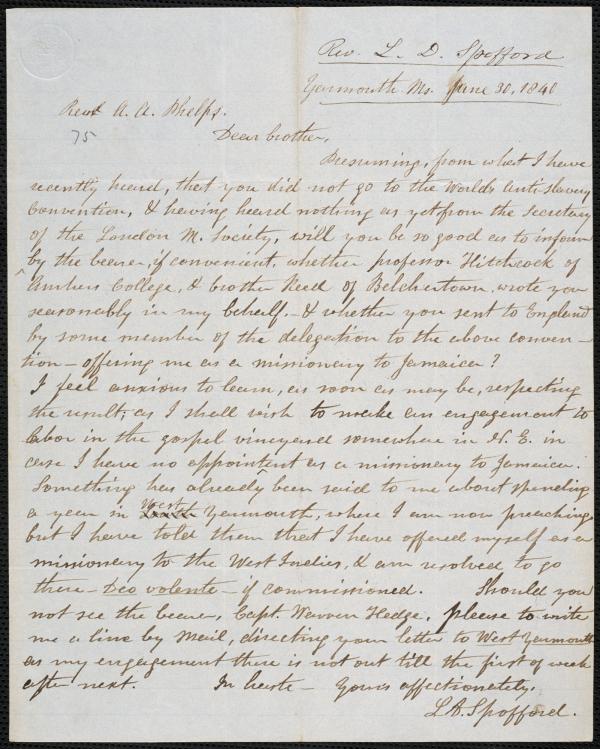 Rev. L. D. Spofford
Yarmouth Ms. June 30, 1840
Revd A. A. Phelps.
75
Dear brother,
Presuming, from what I have
recently heard, that you did not go to the Worlds Anti Slavery
Convention, & having heard nothing as yet from the Secretary
of the London M. Society, will you be so good as to inform
by the bearer, if convenient, whether professor Hitchcock of
Amhers College, & brother Reed of Belchertown, wrote you
seasonably in my behalf, - & whether you sent to England
by some member of the delegation to the above conven-
tion - offering me as a missionary to Jamaica?
I feel anxious to learn, as soon as may be, respecting
the result; as I shall wish to make an engagement to
labor in the gospel vineyard somewhere in N. E. in
case I have no appointent as a missionary to Jamaica.
Something has already been said to me about spending
a year in West Yarmouth, where I am now preaching
but I have told them that I have offered myself as a
missionary to the West Indies, & am resolved to go
there - Deo volente - if commissioned. Should you
not see the bearer, Capt. Warren Hedge, please to write
me a line by Mail, directing your letter to West Yarmouth
as my engagement there is not out till the first of week
after next. In haste - Yours affectionately,
L. A. Spofford.